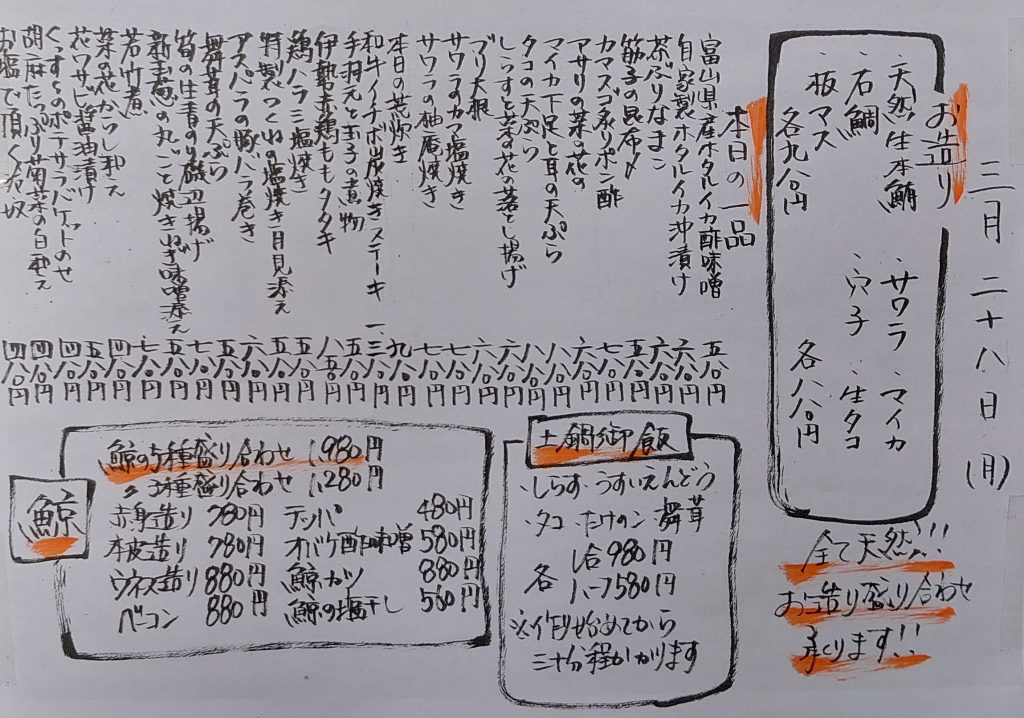 三月二十八日(月)
お造り
・天然生本鮪
・石鯛
・板マス
各九八〇円
・サワラ ・マイカ
・穴子 ・生タコ
各八八〇円
全て天然!!
お造り盛り合わせ
承ります!!
本日の一品
富山県産ホタルイカ酢味噌 五八〇円
自家製ホタルイカ沖漬け 六八〇円
茶ぶりなまこ 六八〇円
筋子の昆布〆 五八〇円
カマスゴ炙りポン酢 七八〇円
アサリの菜の花の 六八〇円
マイカ下足と耳の天ぷら 八八〇円
タコの天ぷら 八八〇円
しらすと菜の花の落とし揚げ 六八〇円
ブリ大根 六八〇円
サワラのカマ塩焼き 七八〇円
サワラの柚庵焼き 七八〇円
本日の荒炊き 九八〇円
和牛イチボ炭焼きステーキ 一、三八〇円
手羽元と玉子の煮物 五八〇円
伊勢赤鶏ももタタキ 八五〇円
鶏ハラミ塩焼き 五八〇円
特製つくねの塩焼き 月見添え 五八〇円
アスパラの豚バラ巻き 六八〇円
舞茸の天ぷら 五八〇円
筍の生青のり磯辺揚げ 七八〇円
新玉葱の丸ごと焼き ねぎ味噌添え 五八〇円
若竹煮 七八〇円
菜の花からし和え 四八〇円
花ワサビ醤油漬け 五八〇円
くっすぐのポテサラバケットのせ 四八〇円
胡麻たっぷり菊菜の白和え 四八〇円
お塩で頂く冷奴 四八〇円
土鍋御飯
・しらす ・うすいえんどう
・タコ ・たけのこ ・舞茸
各 1合980円
ハーフ580円
※作り始めてから
三十分程かかります
鯨
鯨の5種盛り合わせ 1,980円
〃 3種盛り合わせ 1,280円
赤身造り 780円 テッパ 480円
本皮造り 780円 オバケ酢味噌 580円
ウネス造り 880円 鯨カツ 880円
ベーコン 880円 鯨の塩干し 560円